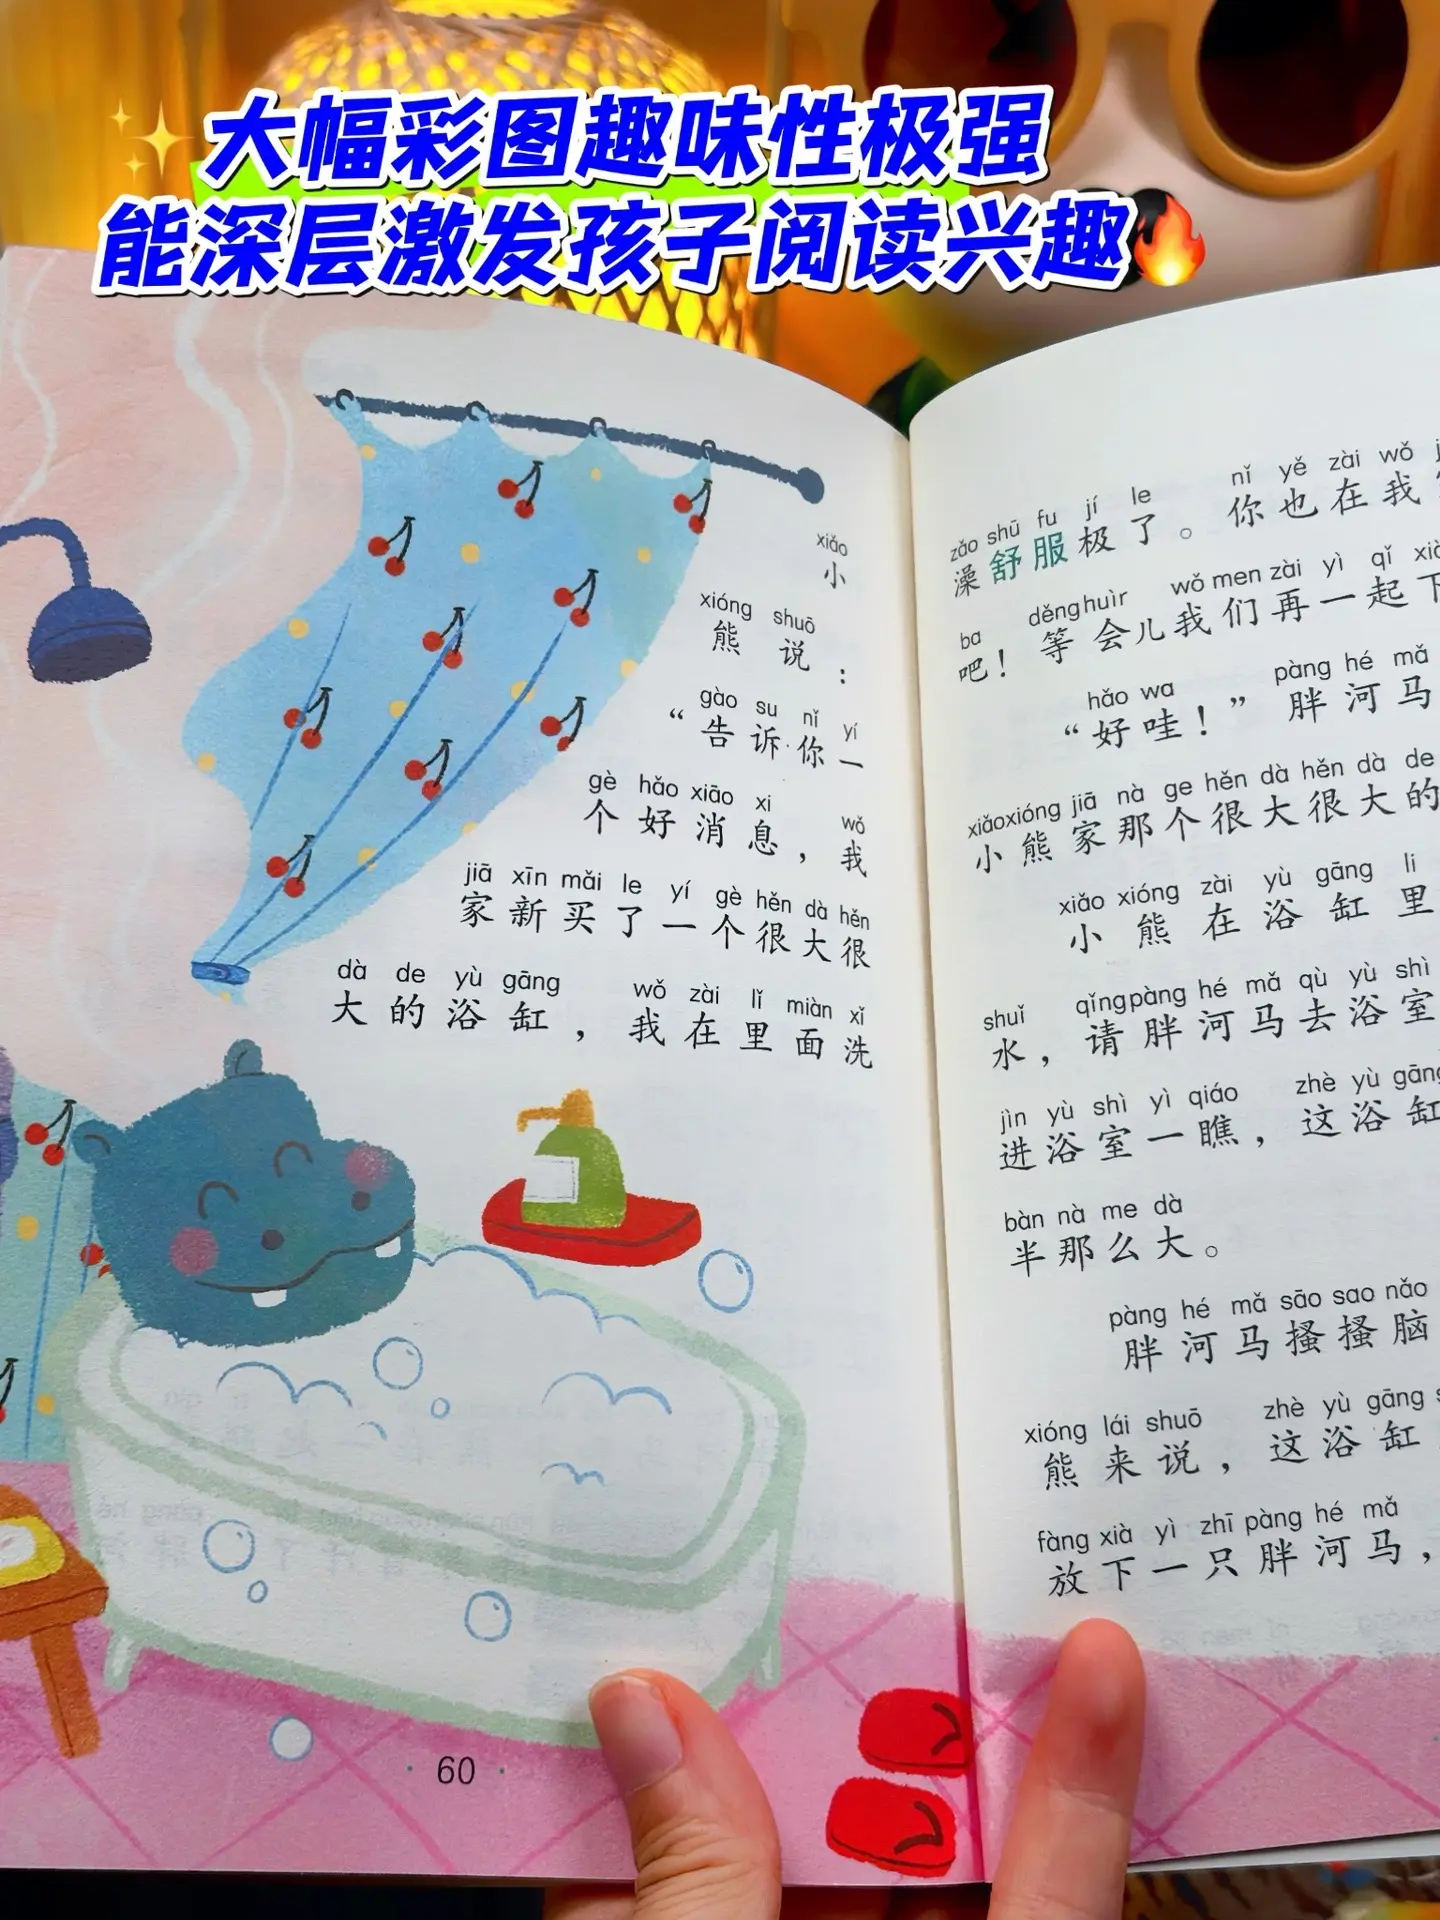 大幅彩图趣味性极强
能深层激发孩子阅读兴趣
xiǎo
小
xióng shuō
熊说：
gào su nǐ yí
“告诉你一
gè hǎo xiāo xi wǒ
个好消息，我
jiā xīn mǎi le yí gè hěn dà hěn
家新买了一个很大很
dà de yù gāng wǒ zài lǐ miàn xǐ
大的浴缸，我在里面洗
60
zǎo shū fu jí le nǐ yě zài wǒ
澡舒服极了。你也在我
ba děng huìr wǒ men zài yì qǐ
吧！等会儿我们再一起下
hǎo wa pàng hé mǎ
“好哇！”胖河马
xiǎo xióng jiā nà ge hěn dà hěn dà de
小熊家那个很大很大的
xiǎo xióng zài yù gāng li
小熊在浴缸里
shuǐ qǐng pàng hé mǎ qù yù shì
水，请胖河马去浴室
jìn yù shì yì qiáo zhè yù gāng
进浴室一瞧，这浴缸
bàn nà me dà
半那么大。
pàng hé mǎ sāo sao nǎo
胖河马搔搔脑
xióng lái shuō zhè yù gāng
熊来说，这浴缸
fàng xià yì zhī pàng hé mǎ
放下一只胖河马，